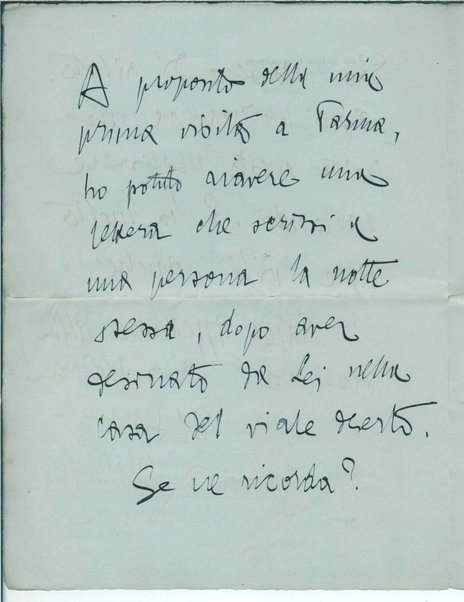 A proposito della mia
prima visita a Parma,
ho potuto riavere una
lettera che scrissi a
una persona la notte
stessa, dopo aver
desinato da Lei nella
casa del viale deserto.
Se ne ricorda?